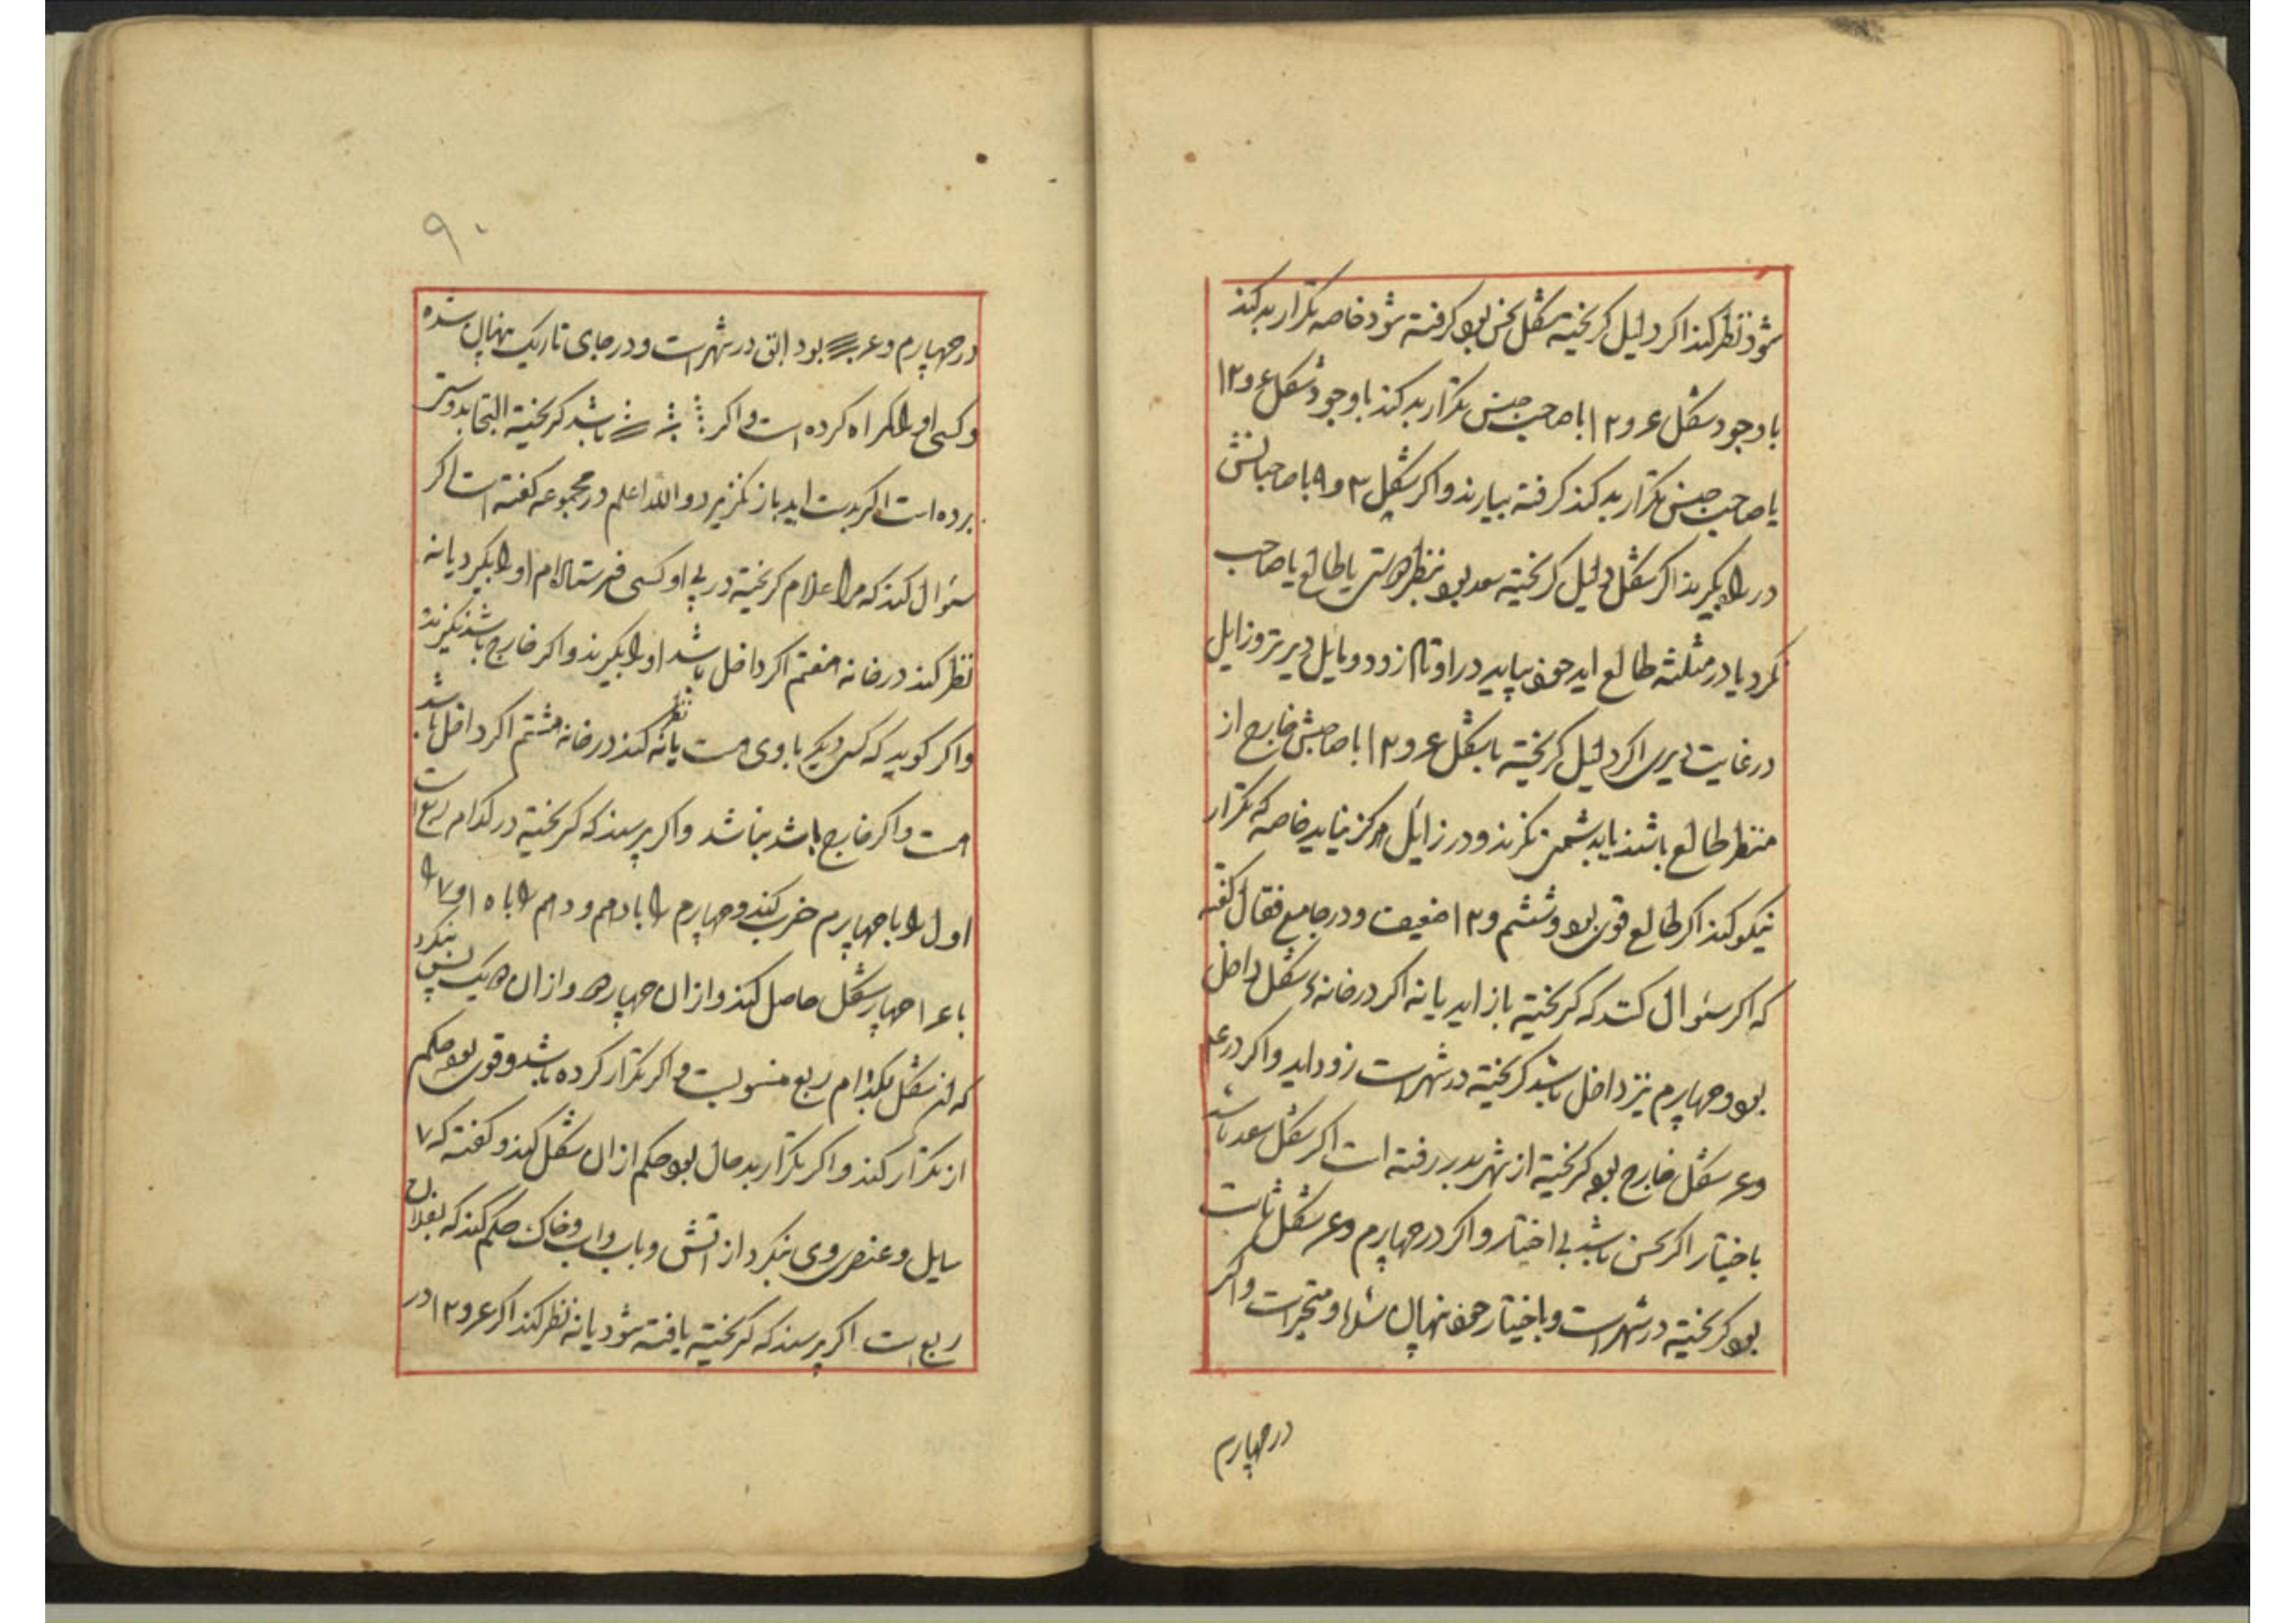 شود نظر کند اکر دلیل کریخته شکل نحس بود کرفته شود خاصه تکرار بد کند
با وجود شکل ۶ و ۱۲ با صاحب حبس تکرار بد کند با وجود شکل ۶ و ۱۲
یا صاحب حبس تکرار بد کند کرفته بیارند و اکر شکل ۳ و ۹ با صاحبانش
در راه بکیرند اکر شکل دلیل کریخته سعد بود بنظر دوستی یا طالع یا صاحب
کرد یا در مثلثه طالع اید خود بیاید در اوتاد زود و مایل دیرتر و زایل
در غایت دیری اکر دلیل کریخته با شکل ۶ و ۱۲ با صاحبش خارج از
منظر طالع باشند یا بدشمنی نکرند و در زایل هرکز نیاید خاصه که تکرار
نیکو کند اکر طالع قوی بود و ششم و ۱۲ ضعیف و در جامع فقال کفته
که اکر سئوال کنند که کریخته باز اید یا نه اکر در خانه شکل داخل
بود و چهارم نیز داخل باشد کریخته در شهر است زود اید و اکر در ۴
و ۶ شکل خارج بود کریخته از شهر بدر رفته است اکر شکل سعد باشد
باختیار اکر نحس باشد بی اختیار و اکر در چهارم و ۶ شکل ثابت
بود کریخته در شهر است و باختیار خود نهان شده و متحیر است و اکر
در چهارم
۹۰
در چهارم و ۶ بود ابق در شهر است و در جای تاریک پنهان شده
و کسی او را کمراه کرده است و اکر باشد کریخته التجا بدوستر
برده است اکر بدست اید باز نکریزد و الله اعلم در مجموعه کفته است اکر
سئوال کند که مرا غلام کریخته در پی او کسی فرستاده ام او را بکیرد یا نه
نظر کند در خانه هفتم اکر داخل باشد او را بکیرند و اکر خارج باشد نکیرند
و اکر کوید که کس دیکر با وی هست یا نه نظر کند در خانه هشتم اکر داخل باشد
هست و اکر خارج باشد نباشد و اکر پرسند که کریخته در کدام ربع است
اول را با چهارم ضرب کند و چهارم را با دهم و دهم را با ۱۵ و ۷ را
با ۱۶ چهار شکل حاصل کند و از ان چهار دو و از ان دو یک پس بنکرد
که ان شکل بکدام ربع منسوبست و اکر تکرار کرده باشد و قوی بود حکم
از تکرار کند و اکر تکرار بد حال بود حکم از ان شکل کند و کفته که ۷
سایل و عنصر وی بنکرد از اتش و باب و اب و خاک حکم کند که بفلان
ربع است اکر پرسند که کریخته یافته شود یا نه نظر کند اکر ۶ و ۱۲ در